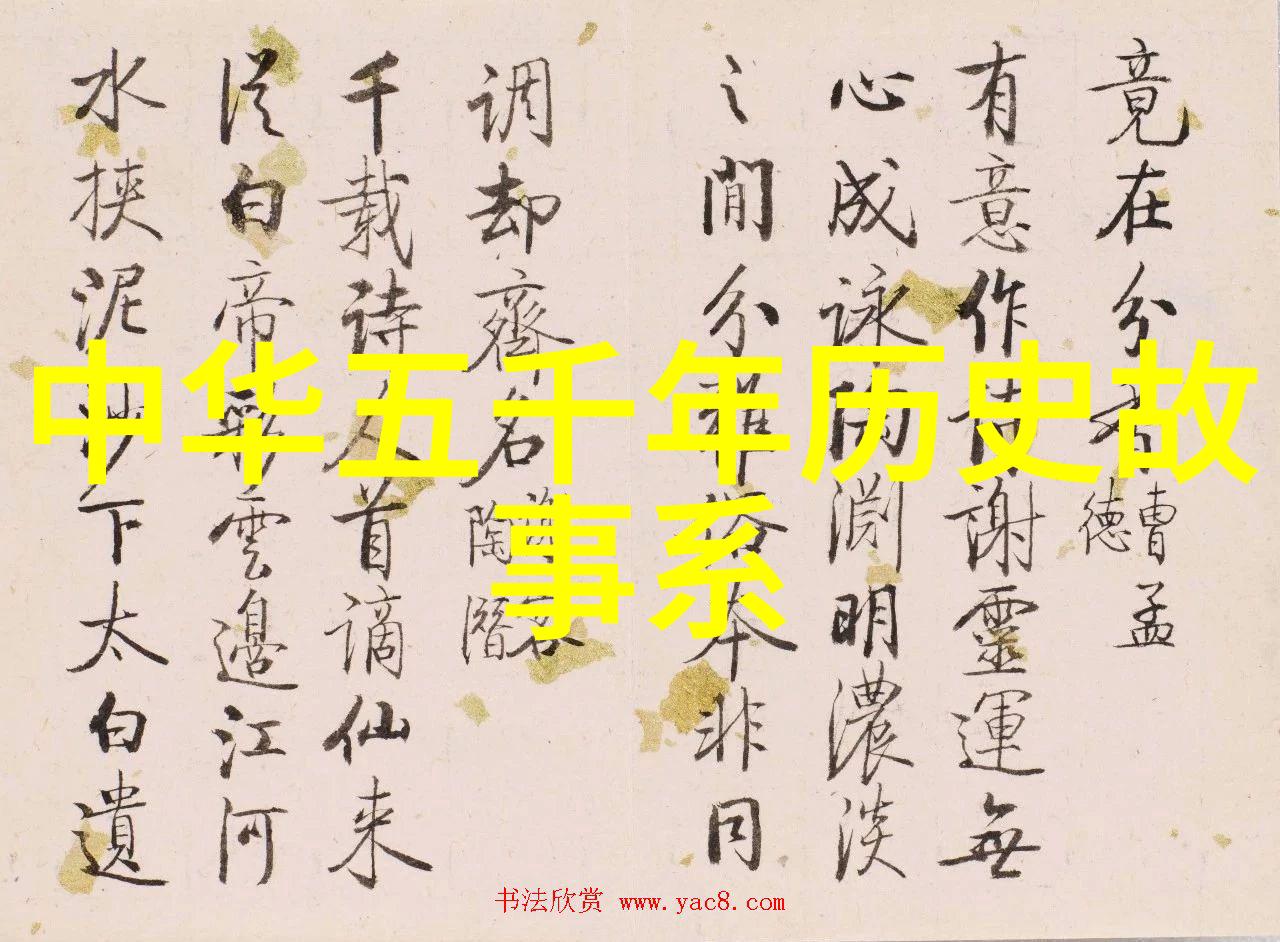 竟在分
曹孟
德
有意作诗謝靈運無
心成詠陶淵明濃淡
之間分雅俗本非同
调却齊名
謝客
陶潛
千载诗人首謫仙来
從白帝彩雲邊江河
水挾泥沙下太白遺
中华五千年历史故
事系
书法欣赏 www.yac8.com